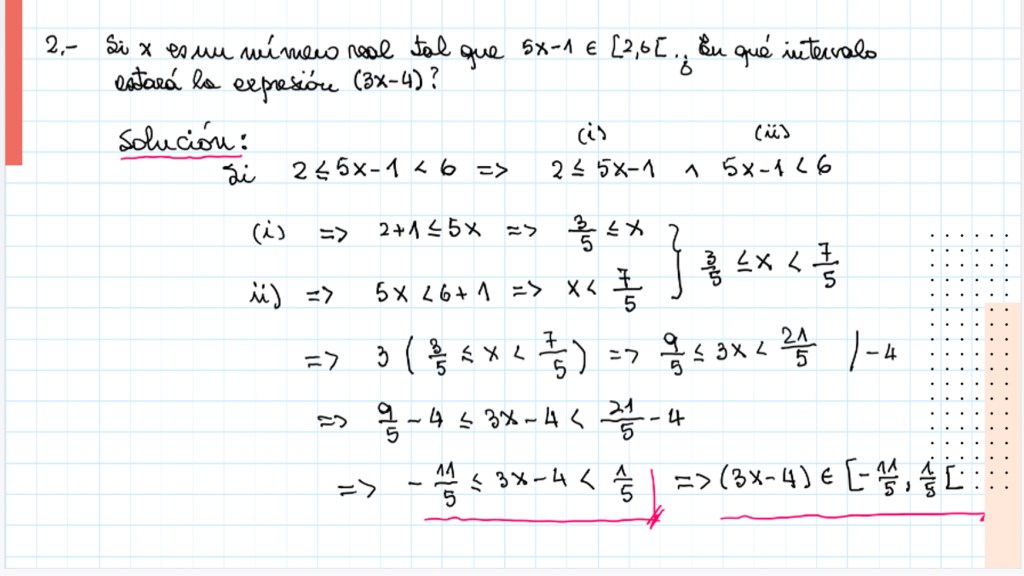 2.- Si x es un número real tal que 5x-1 ∈ [2,6[. ¿En qué intervalo
estará la expresión (3x-4)?
Solución:
(i) (ii)
Si 2 ≤ 5x-1 < 6 => 2 ≤ 5x-1 ∧ 5x-1 < 6
(i) => 2+1 ≤ 5x => 3/5 ≤ x
ii) => 5x < 6+1 => x < 7/5 } 3/5 ≤ x < 7/5
=> 3 ( 3/5 ≤ x < 7/5 ) => 9/5 ≤ 3x < 21/5 / -4
=> 9/5 - 4 ≤ 3x-4 < 21/5 - 4
=> - 11/5 ≤ 3x-4 < 1/5 => (3x-4) ∈ [-11/5, 1/5[